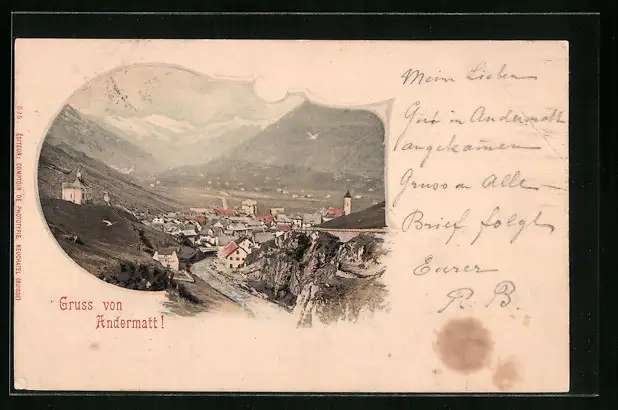 375. ÉDITEUR: COMPTOIR DE PHOTOTYPIE, NEUCHATEL (SUISSE)
Gruss von
Andermatt!
Mein Lieben
Gut in Andermatt
angekommen
Gruss an Alle
Brief folgt
Eurer
R. B.